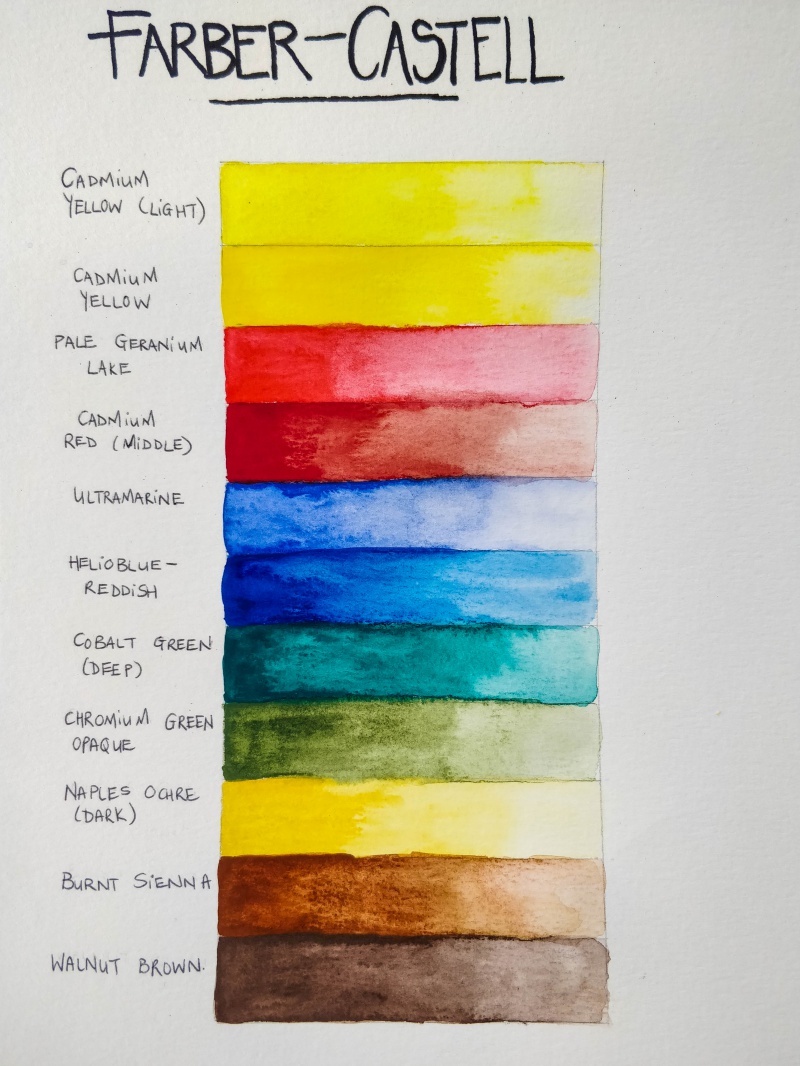 FARBER-CASTELL
CADMIUM
YELLOW (LIGHT)
CADMIUM
YELLOW
PALE GERANIUM
LAKE
CADMIUM
RED (MIDDLE)
ULTRAMARINE
HELIOBLUE-
REDDISH
COBALT GREEN
(DEEP)
CHROMIUM GREEN
OPAQUE
NAPLES OCHRE
(DARK)
BURNT SIENNA
WALNUT BROWN.